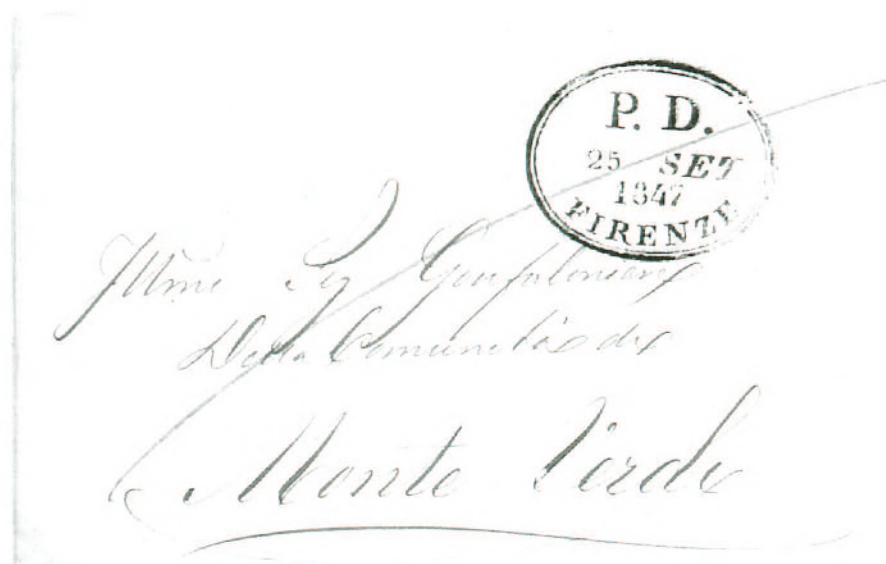 P. D.
25 SET
1847
FIRENZE
Illmo Sig Gonfaloniere
Della Comunità di
Monte Verdi